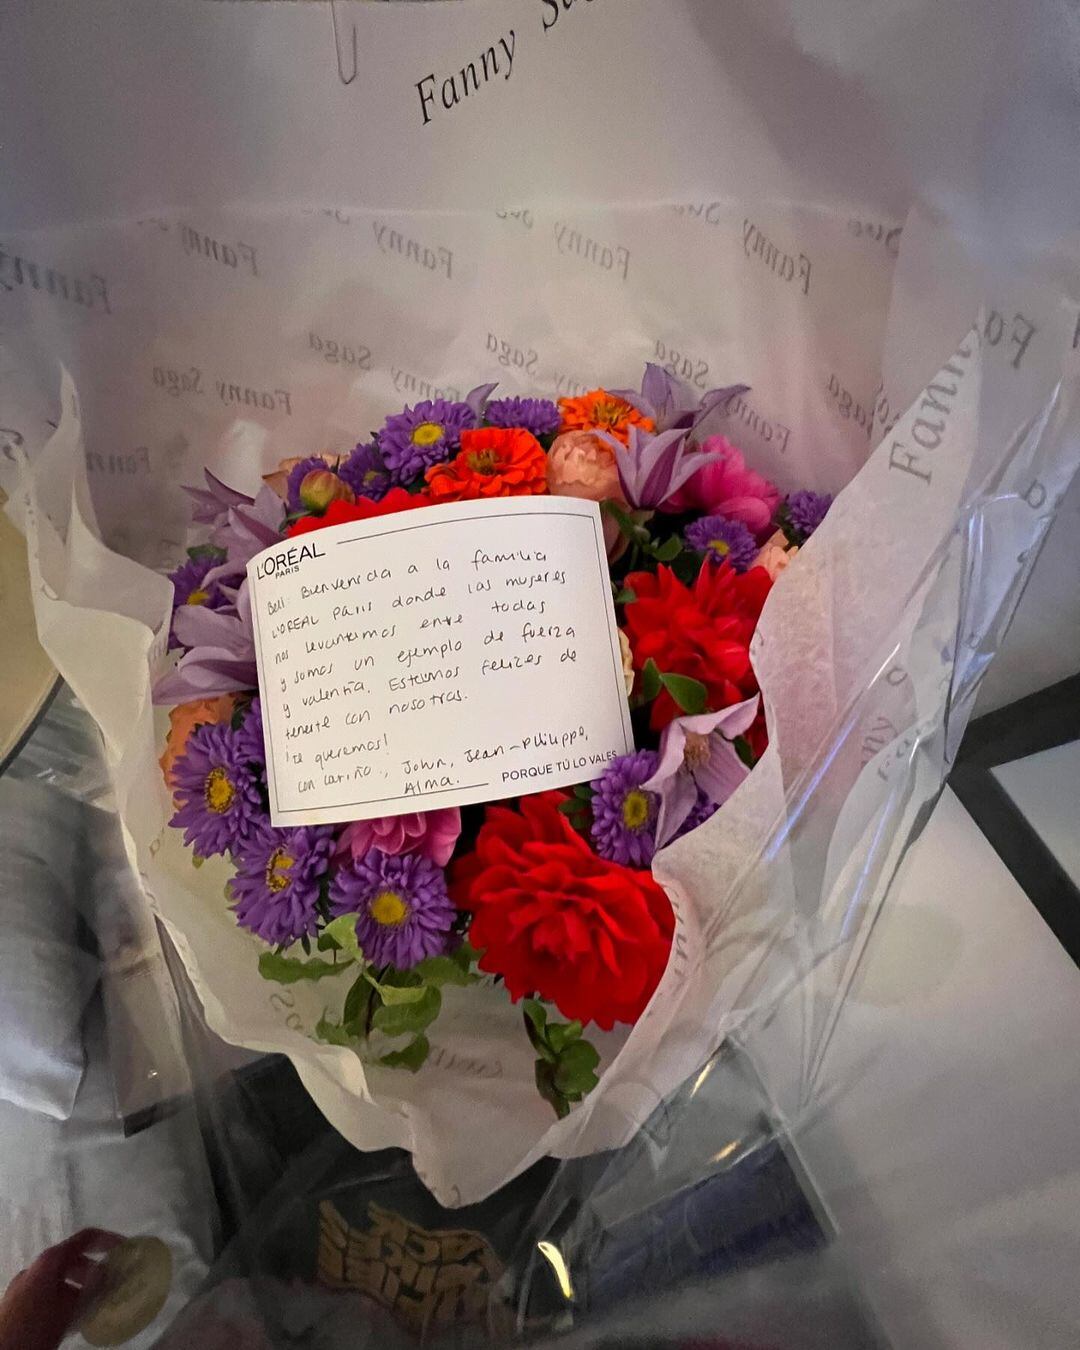 Fanny
Fanny
Fanny
Fanny
Fanny
Fanny
Saga
Saga
Saga
Fanny Saga
Fanny
Fanny
Saga
L'ORÉAL
PARIS
Beli: Bienvenida a la familia
L'OREAL París donde las mujeres
nos levantamos entre todas
y somos un ejemplo de fuerza
y valentía. Estamos felices de
tenerte con nosotras.
¡te queremos!
con cariño, John, Jean-Philippe,
Alma.
PORQUE TÚ LO VALES